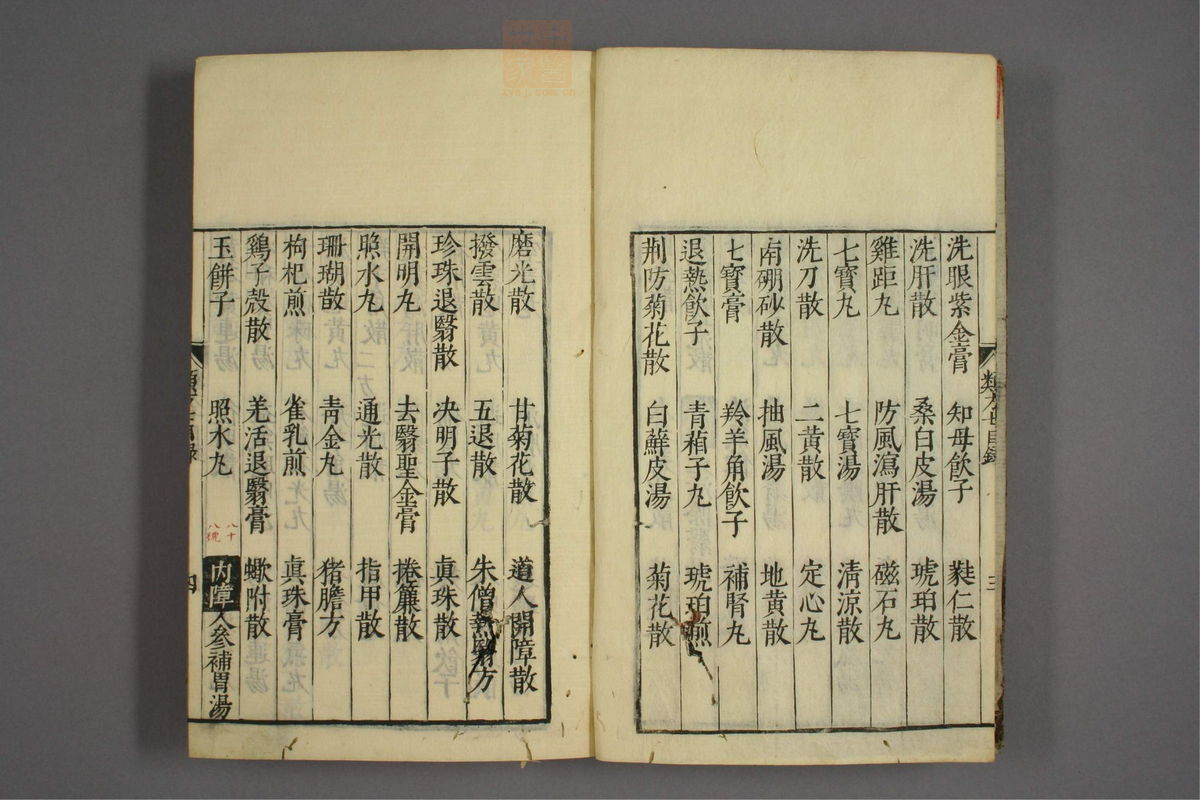 洗眼紫金膏 知母飲子 蕤仁散
洗肝散 桑白皮湯 琥珀散
雞距丸 防風瀉肝散 磁石丸
七寶丸 七寶湯 清涼散
洗刀散 二黃散 定心丸
南硼砂散 抽風湯 地黃散
七寶膏 羚羊角飲子 補腎丸
退熱飲子 青葙子丸 琥珀煎
荆防菊花散 白蘚皮湯 菊花散
磨光散 甘菊花散 道人開障散
撥雲散 五退散 朱僧熱翳方
珍珠退翳散 决明子散 眞珠散
開明丸 去翳聖金膏 捲簾散
照水丸 通光散 指甲散
珊瑚散 青金丸 猪膽方
枸杞煎 雀乳煎 眞珠膏
鷄子殼散 羌活退翳膏 蠍附散
玉餅子 照水丸 內障 人參補胃湯
八十八號
目錄
三
四